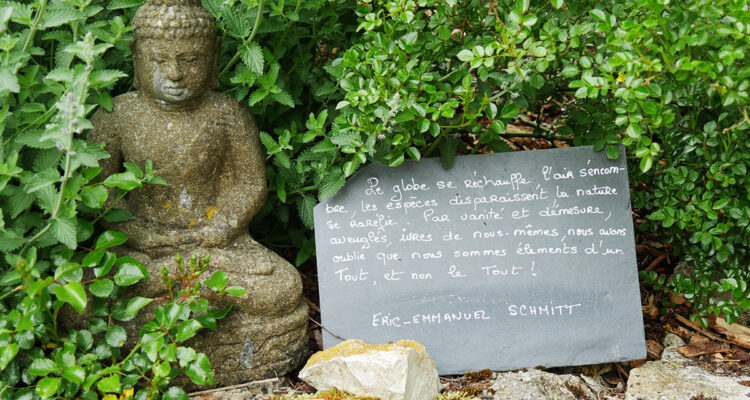 Le globe se réchauffe, l'air s'encom-
bre, les espèces disparaissent, la nature
se raréfie. Par vanité et démesure,
aveugles, ivres de nous-mêmes, nous avons
oublié que nous sommes éléments d'un
Tout, et non le Tout !
ERIC-EMMANUEL SCHMITT